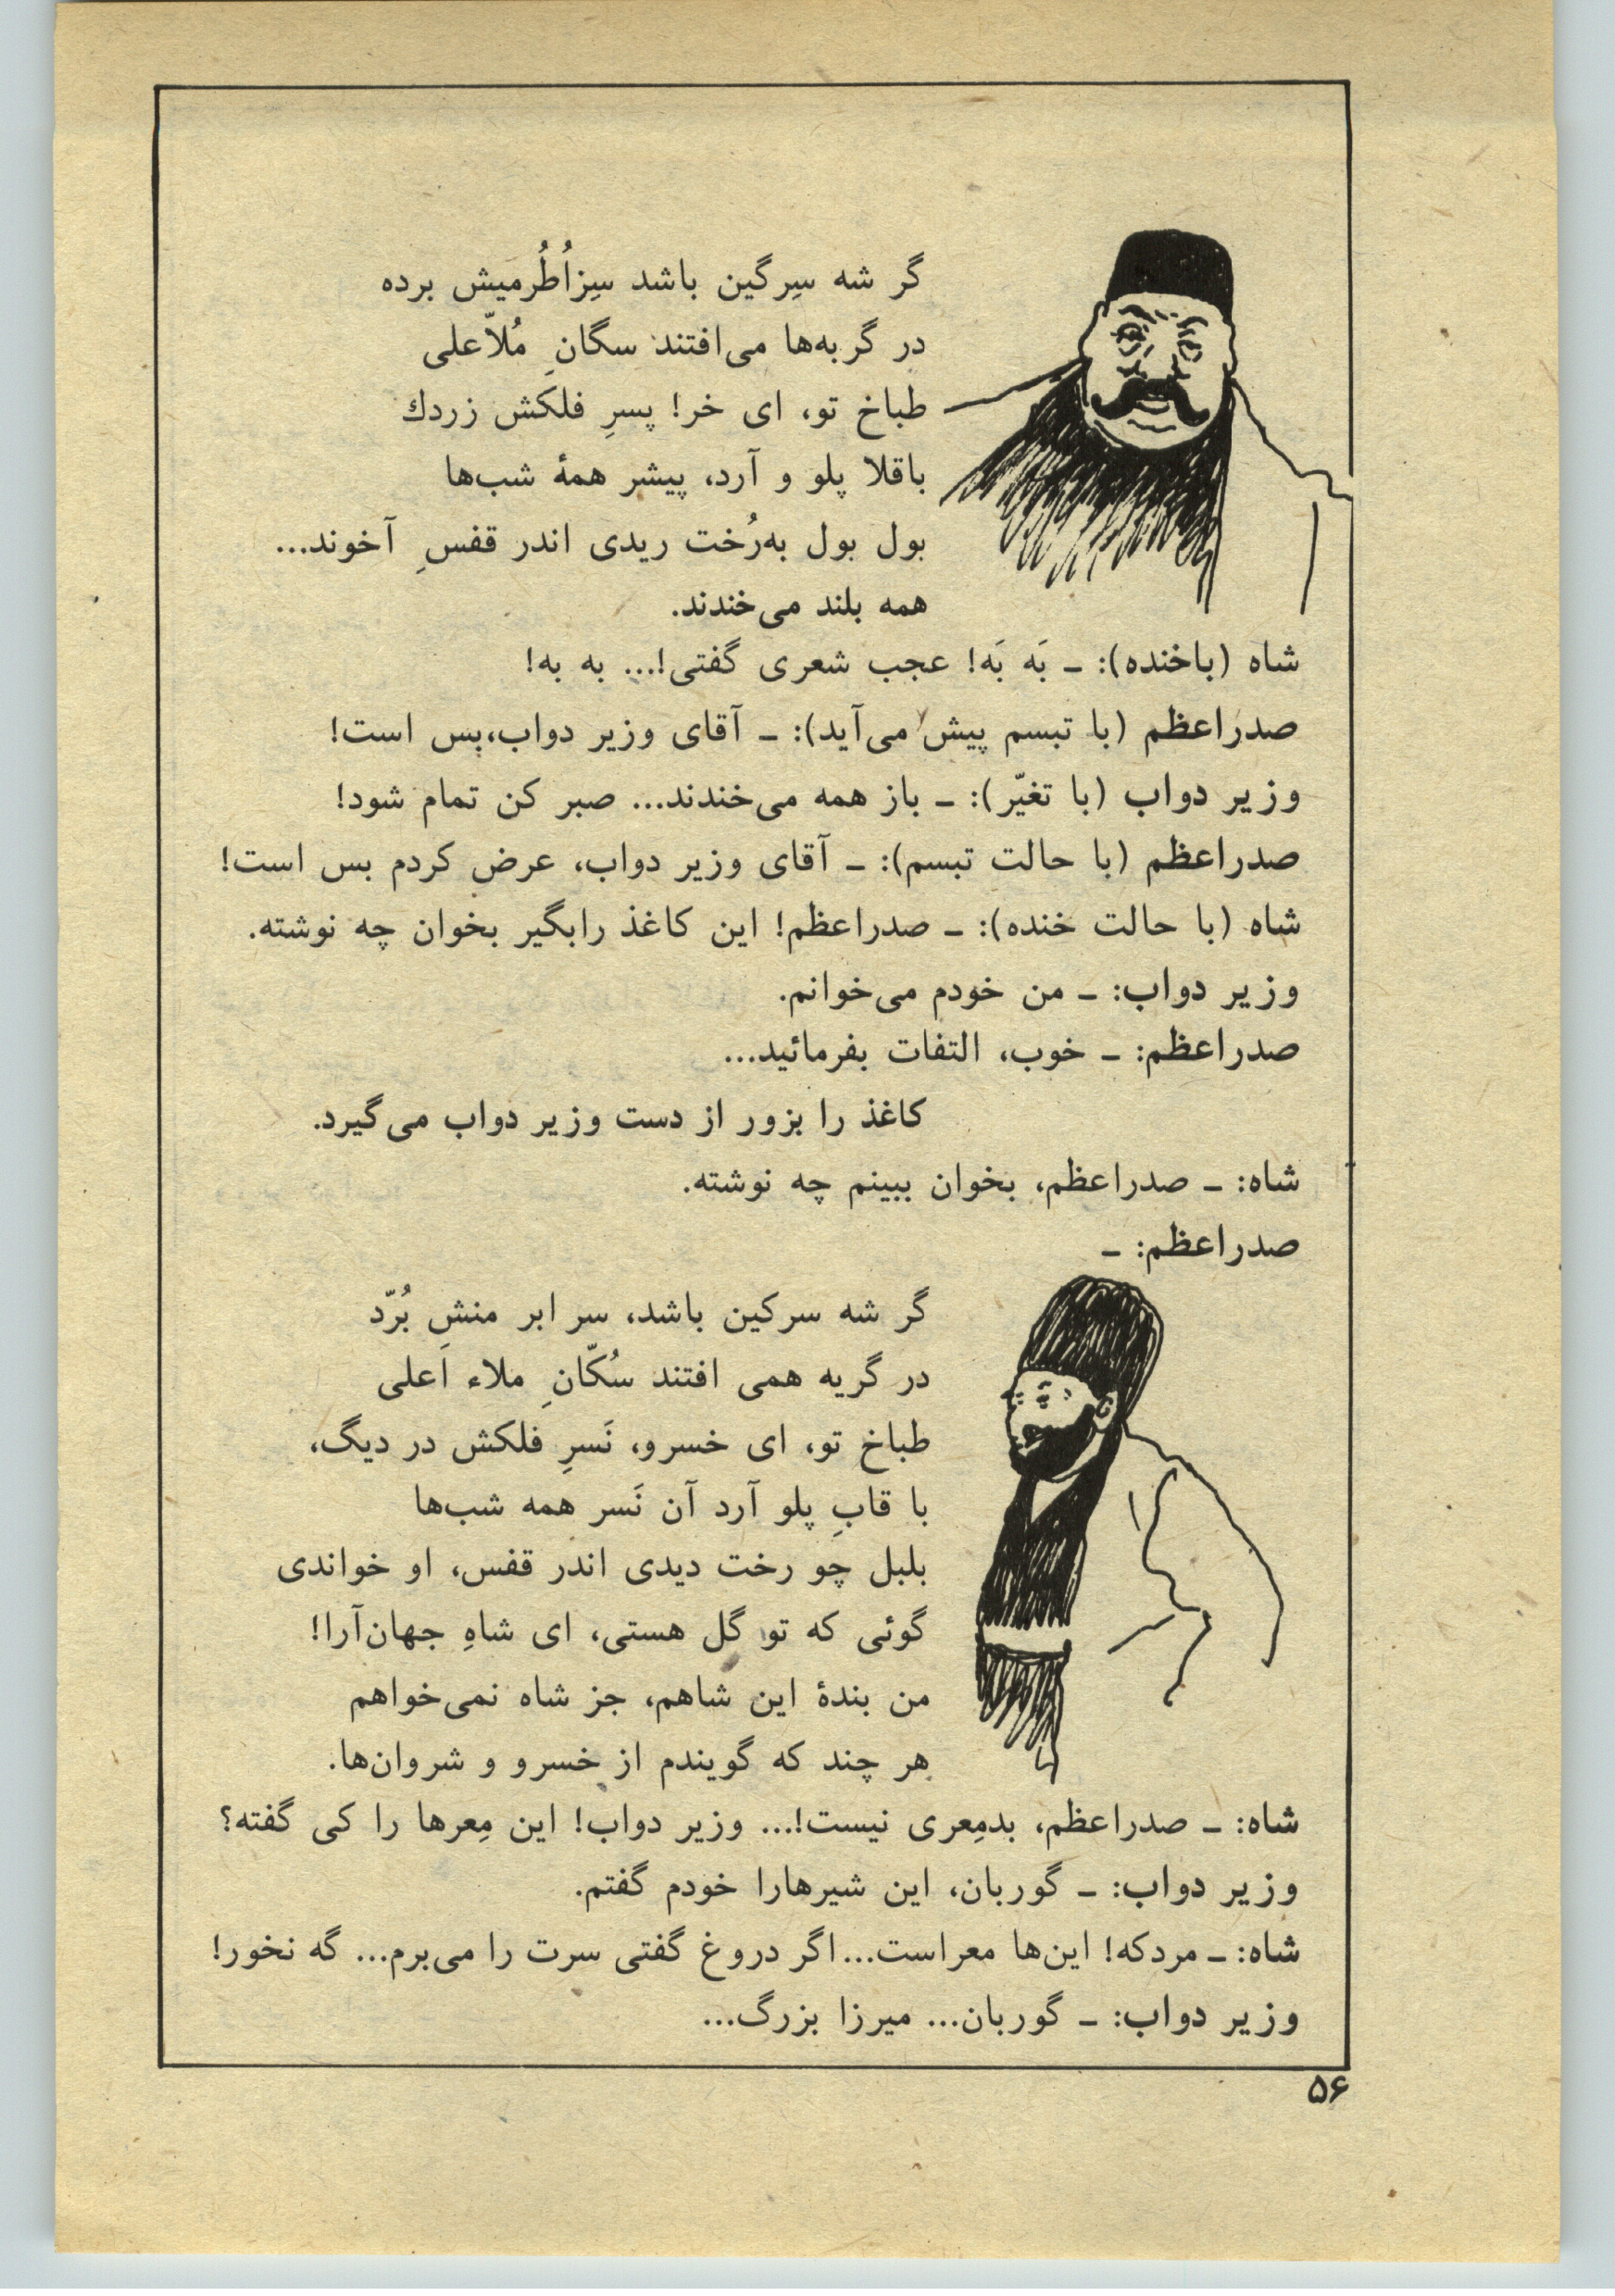 گر شه سِرگین باشد سِزاُطُرمیش برده
در گربه‌ها می‌افتند سگانِ مُلاّعلی
طباخ تو، ای خر! پسرِ فلکش زردك
باقلا پلو و آرد، پیشر همهٔ شب‌ها
بول بول به‌رُخت ریدی اندر قفسِ آخوند...
همه بلند می‌خندند.
شاه (باخنده): ـ بَه بَه! عجب شعری گفتی!... به به!
صدراعظم (با تبسم پیش می‌آید): ـ آقای وزیر دواب،بس است!
وزیر دواب (با تغیّر): ـ باز همه می‌خندند... صبر کن تمام شود!
صدراعظم (با حالت تبسم): ـ آقای وزیر دواب، عرض کردم بس است!
شاه (با حالت خنده): ـ صدراعظم! این کاغذ رابگیر بخوان چه نوشته.
وزیر دواب: ـ من خودم می‌خوانم.
صدراعظم: ـ خوب، التفات بفرمائید...
کاغذ را بزور از دست وزیر دواب می‌گیرد.
شاه: ـ صدراعظم، بخوان ببینم چه نوشته.
صدراعظم: ـ
گر شه سرکین باشد، سر ابر منشِ بُرّد
در گریه همی افتند سُکّانِ ملاء اَعلی
طباخ تو، ای خسرو، نَسرِ فلکش در دیگ،
با قابِ پلو آرد آن نَسر همه شب‌ها
بلبل چو رخت دیدی اندر قفس، او خواندی
گوئی که تو گل هستی، ای شاهِ جهان‌آرا!
من بندهٔ این شاهم، جز شاه نمی‌خواهم
هر چند که گویندم از خسرو و شروان‌ها.
شاه: ـ صدراعظم، بدمِعری نیست!... وزیر دواب! این مِعرها را کی گفته؟
وزیر دواب: ـ گوربان، این شیرهارا خودم گفتم.
شاه: ـ مردکه! این‌ها معراست... اگر دروغ گفتی سرت را می‌برم... گه نخور!
وزیر دواب: ـ گوربان... میرزا بزرگ...
۵۶